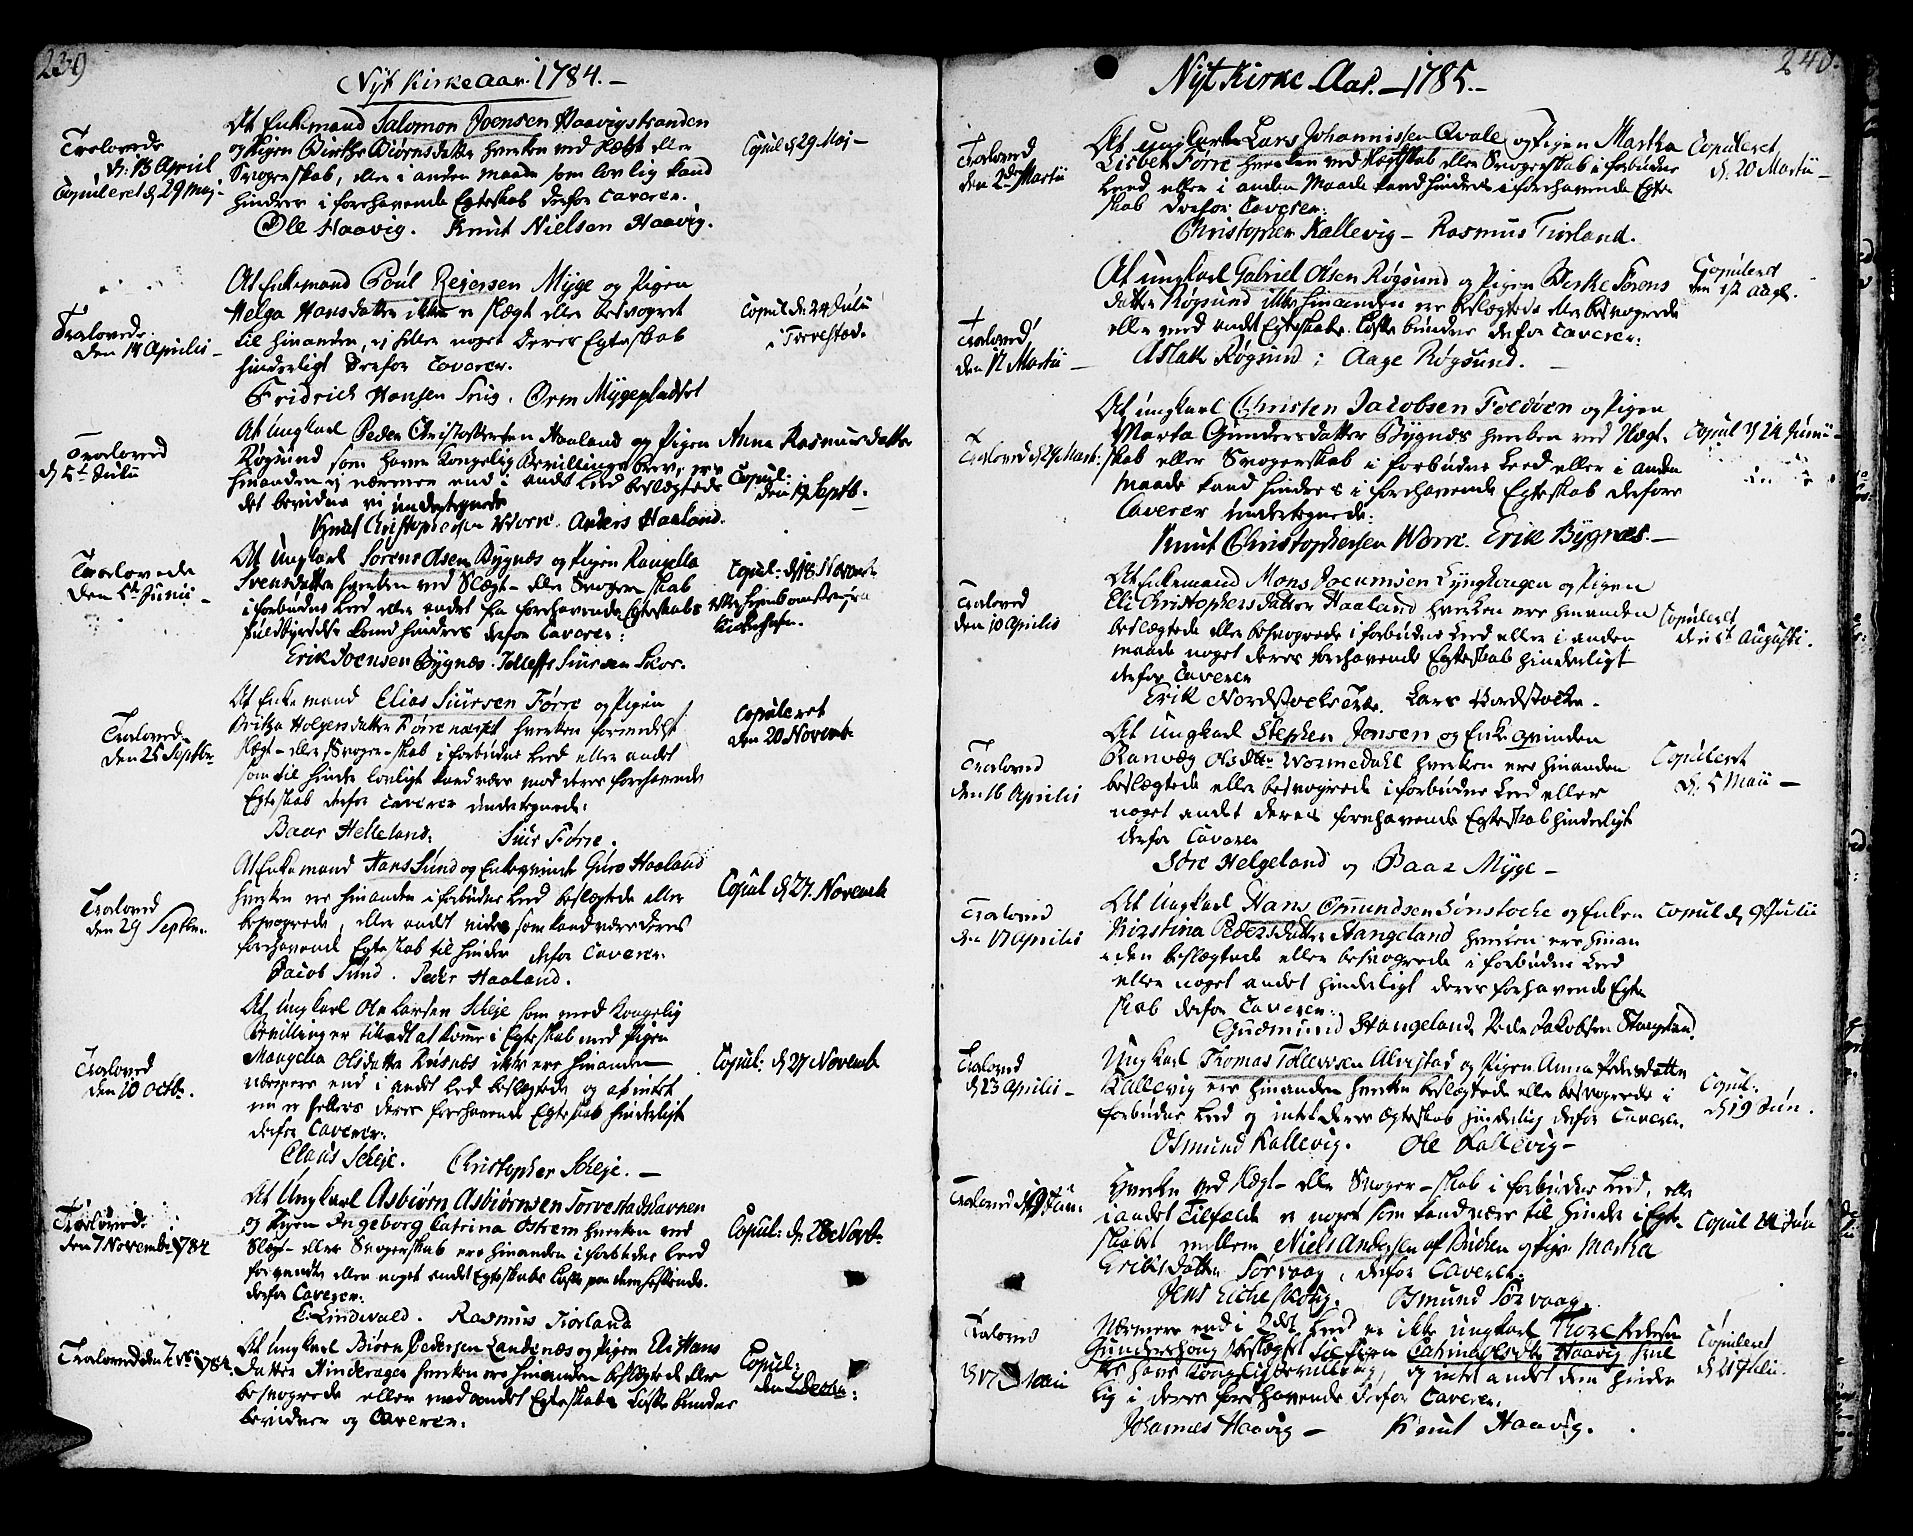 239
Nyt Kirke Aar. 1784. –
Trolovede
d: 13 April
Copuleret d 29 Maj.
At Enkemand Salomon Joensen Haavigstranden
og Pigen Birthe Biørnsdatter hverken ved Slægt eller
Svogerskab, eller i anden maade som lovlig kand
hindres i forehavende Egteskab derfor Caverer.
Ole Haavig. Knut Nielsen Haavig.
Copul d 29 Maj –
Trolovede
den 14 Aprilis –
At Enkemand Poul Reiersen Myge og Pigen
Helga Hansdatter ikke er slegt eller besvogret
til hinanden, ej heller noget deres Egteskab
hinderligt derfor Caverer.
Fridrich Hansen. Orm Mygepladset
Copul d: 24 Julii
i Torvestad.
Troloved
d 5t Julii
At Ungkarl Peder Christophersen Haaland og Pigen Anna Rasmusdatter
Røgsund som haver Kongelig Bevillings brev, er
hinanden ej nærmere end i andet Leed beslegtede
det bevidner vi undertegnede
Knut Christophersen Worre. Anders Haaland.
Copul:
den 19 Septb.
Trolovede
den 5t Junii –
At Ungkarl Sorens Olsen Bygnes og Pigen
Svensdatter hverken ved Slegt – eller Svogerskab
i forbudne Leed eller andet fra forehavende Egteskabs
fuldbyrdelse kand hindres derfor Caverer:
Erik Joensen Bygnes. Tolleff Siursen Skor.
Copul: d 18 Novemb
Trolovede
den 25 Septbr.
At Enkemand Elias Siursen Førre og Pigen
Britha Holgersdatter Førre hverken formedelst
Slegt – eller Svoger – skab i forbudne Leed eller andet
som til hinder lovligt kand være mod deres forehavende
Egteskab derfor Caverer undertegnede:
Baar Helleland. Siur Førre.
Copuleret
den 20 Novemb
Troloved
den 29 Septbr.
At Enkemand Hans Sund og Enkeqvinde Guro Haaland
hverken ere hinanden i forbudne Leed beslegtede eller
besvogrede, eller andet vides som kand være deres
forehavende Egteskab til hinder derfor Caverer
Jacob Sund. Peder Haaland.
Copul d 27. Novemb
Troloved
den 10 Octb.
At Ungkarl Ole Larsen Scheje som med Kongelig
Bevilling er tilladt at komme i Egteskab med Pigen
Mangela Olsdatter ikke ere hinanden
nærmere end i andet Leed beslegtede og at intet
nu er hellers deres forehavende Egteskab hinderligt
derfor Caverer:
Claus Scheje. Christopher Scheje. –
Copul: d 27 Novemb
Trolovede
den 7 Novemb 1784
At Ungkarl Asbiørn Asbiørnsen Torvestadshavnen
og Pigen Ingeborg Catrina Østrem hverken ved
Slegt – eller Svogerskab ere hinanden i forbudne Leed
forvandte eller noget andet Egteskabs
derfor Caverer:
Lindevald. Rasmus Tiorland
Copul: d: 28 Novb.
Troloved den 7 Nov: 1784.
At Ungkarl Biørn Pedersen Landenæs og Pigen Eli Hans
Datter Hinderagen hverken ere hinanden beslegtede eller
besvogrede eller ved andet Egteskabs Løfte bunden
bevidner og Caverer:
Copul:
den 2 Decbr:
240.
Nyt Kirke Aar. – 1785. –
Troloved
den 2den Martii
At ungkarl Lars Johannissen Qvale og Pigen Martha
Lisbet Førre hverken ved Slegtskab eller Svogerskab i forbudne
Leed eller i anden Maade kand hindres i forehavende Egte
skab derfor Caverer:
Christopher Kallevig – Rasmus Tiorland.
Copuleret
d. 20 Martii –
Troloved
den 17 Martii –
At ungkarl Gabriel Olsen Røgsund og Pigen Birthe Sørens
datter Røgsund ikke hinanden ere beslegtede eller besvogrede
eller ved andet Egteskabs Løfte bundne derfor Caverer:
Aslak Røgsund; Aage Røgsund. –
Copuleret
den 12 Aug.
Troloved d 29 Mart:
At ungkarl Christen Jacobsen Foldøen og Pigen
Marta Gundersdatter Bygnes hverken ved Slegt-
skab eller Svogerskab i forbudne Leed eller i anden
maade kand hindres i forehavende Egteskab derfore
Caverer undertegnede:
Knut Christophersen Worre. Erik Bygnes. –
Copul d 24 Junii –
Trolovd
den 10 Aprilis
At Enkemand Mons Jocumsen Lynghaugen og Pigen
Eli Christophersdatter Haaland hverken ere hinanden
beslegtede eller besvogrede i forbudne Leed eller i anden
maade noget deres forehavende Egteskab hinderligt
derfor Caverer
Erik Nordstocke. Lars Nordstocke –
Copuleret
den 5t Augusti.
Trolovd
den 16 Aprilis
At Ungkarl Stephen Jonsen og Enkeqvinden
Ranvæg Olsdtr Wormedahl hverken ere hinanden
beslegtede eller besvogrede i forbudne Leed eller
noget andet deres forehavende Egteskab hinderligt
derfor Caverer
Tore Helgeland og Baar Myge –
Copuleret
d: 5 Maii –
Trolovd
den 17 Aprilis
At Ungkarl Hans Omundsen Sønstocke og Enken
Kirstina Pedersdatter Stangeland hverken ere hinan
den beslegtede eller besvogrede i forbudne Leed
eller noget andet hinderligt deres forehavende Egte
skab derfor Caverer:
Gudmund Stangeland. Peder Jakobsen Stangeland.
Copul d 9 Julii
Trolovd
d 23 Aprilis –
Ungkarl Thomas Tollevsen Alvestad og Pigen Anna Pedersdatter
Kallevig ere hinanden hverken beslegtede eller besvogrede i
forbudne Leed og intet deres Egteskab hinderlig derfor Caverer.
Osmund Kallevig. Ole Kallevig –
Copul:
d 19 Jun.
Trolovd d 9 Jun:
Hverken ved Slegt – eller Svoger – skab i forbudne Leed, eller
i andet Tilfælde er noget som kand være til hinder i Egte-
skabet mellem Niels Andersen af Bucken og Pigen Marta
Erichsdatter Torvaag, derfor Caverer:
Jens Eicheskoug. Osmund Torvaag.
Copul 24 Jun
Trolovd
d 17 Maii
Nærmere end i 2det Leed er ikke ungkarl Thore Pedersen
Gundershoug beslegtet til Pigen Haavig
Kongelig bevilling, og intet andet dem hinder
lig i deres forehavende derfor Caverer.
Johannes Haavig – Knut Haavig.
Copuleret
d 21 Julii.